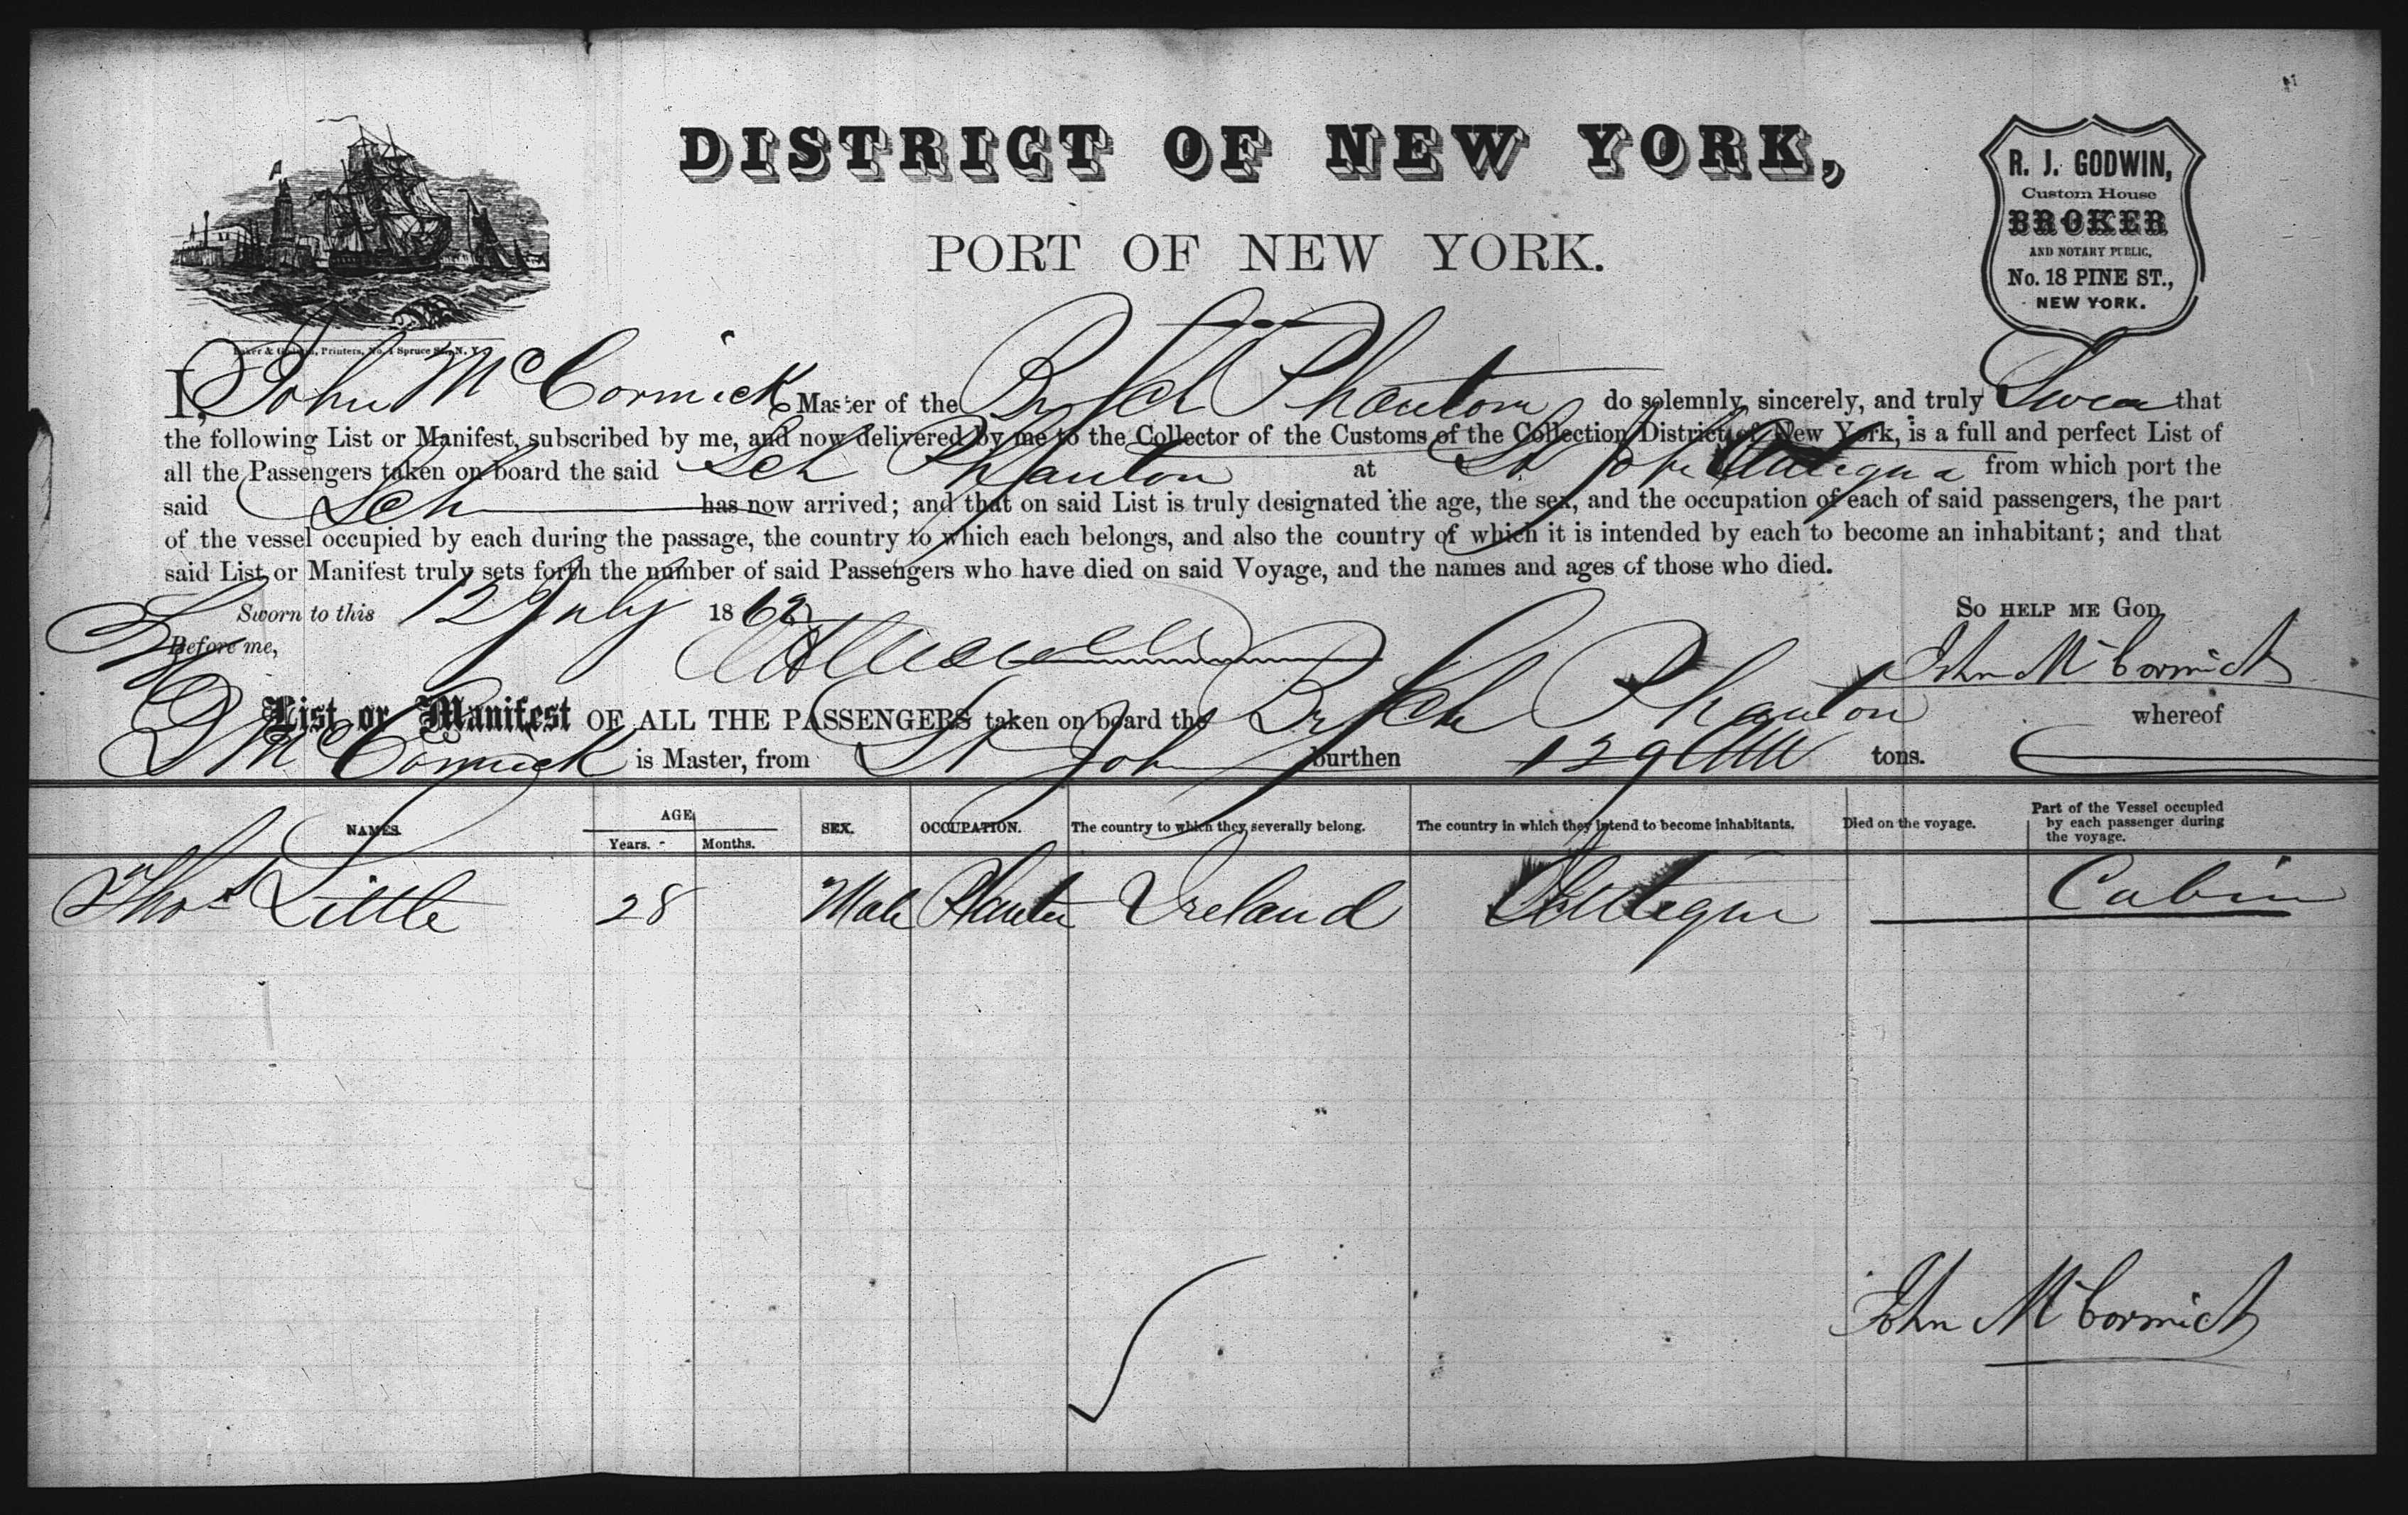 DISTRICT OF NEW YORK,
PORT OF NEW YORK.
R. J. GODWIN,
Custom House
BROKER
AND NOTARY PUBLIC,
No. 18 PINE ST.,
NEW YORK.
Baker & Godwin, Printers, No. 1 Spruce St., N. Y.
I, John McCormick Master of the Br Sch Phantom do solemnly, sincerely, and truly Swear that
the following List or Manifest, subscribed by me, and now delivered by me to the Collector of the Customs of the Collection District of New York, is a full and perfect List of
all the Passengers taken on board the said Sch Phantom at St John Antegua from which port the
said Sch has now arrived; and that on said List is truly designated the age, the sex, and the occupation of each of said passengers, the part
of the vessel occupied by each during the passage, the country to which each belongs, and also the country of which it is intended by each to become an inhabitant; and that
said List or Manifest truly sets forth the number of said Passengers who have died on said Voyage, and the names and ages of those who died.
Sworn to this 12 July 1862 So HELP ME GOD,
Before me, John McCormick
List or Manifest OF ALL THE PASSENGERS taken on board the Br Sch Phantom whereof
McCormick is Master, from St John burthen 129 tons.
NAMES. AGE SEX. OCCUPATION. The country to which they severally belong. The country in which they intend to become inhabitants. Died on the voyage. Part of the Vessel occupied by each passenger during the voyage.
Years. Months.
Thos Little 28 Male Planter Ireland Antegua Cabin
John McCormick